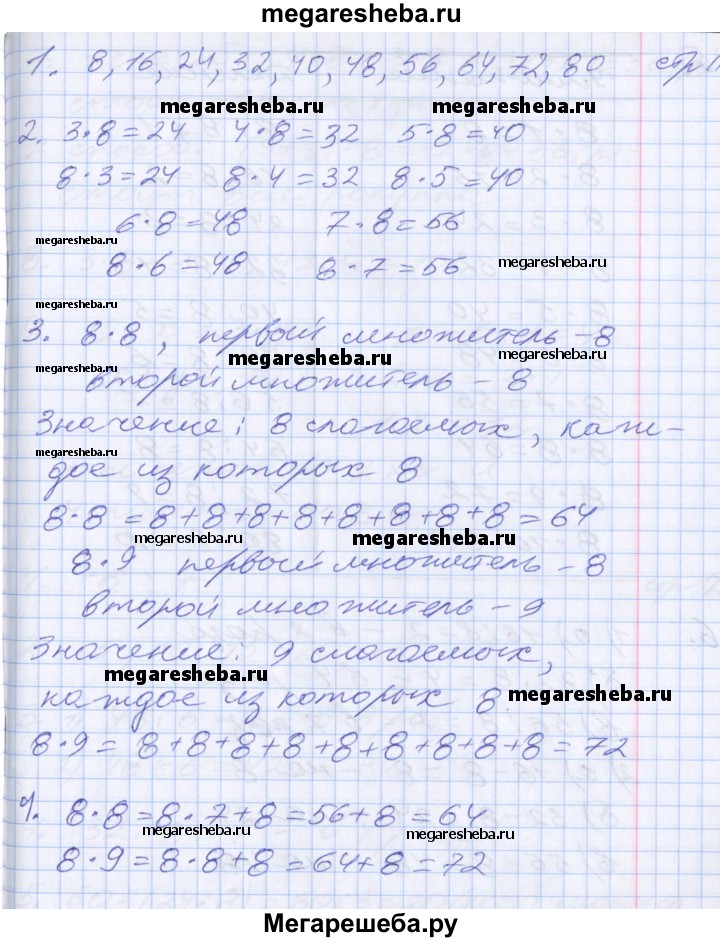 megaresheba.ru
1. 8, 16, 24, 32, 40, 48, 56, 64, 72, 80 стр
megaresheba.ru megaresheba.ru
2. 3·8=24 4·8=32 5·8=40
8·3=24 8·4=32 8·5=40
6·8=48 7·8=56
megaresheba.ru
8·6=48 8·7=56 megaresheba.ru
megaresheba.ru
3. 8·8, первый множитель -8
megaresheba.ru megaresheba.ru
второй множитель - 8
Значение: 8 слагаемых, каж-
megaresheba.ru
дое из которых 8
8·8 = 8+8+8+8+8+8+8+8=64
megaresheba.ru megaresheba.ru
8·9 первый множитель - 8
второй множитель - 9
Значение: 9 слагаемых,
megaresheba.ru
каждое из которых 8. megaresheba.ru
8·9= 8+8+8+8+8+8+8+8+8=72
4. 8·8=8·7+8=56+8=64
megaresheba.ru megaresheba.ru
8·9=8·8+8=64+8=72
Мегарешеба.ру